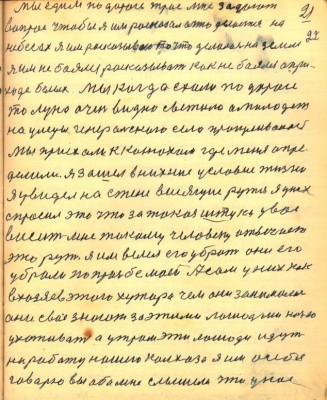 Мы едим по дороге трое мне задают 21
вопрос чтобы я им росказал што делается на 24
небесах я им росказываю то что делают на земли
я им не боялся росказывать как не боялся о при
ходе белых. Мы когда ехали по дороге
то луно очен видно светило а молодеж
на улецы генеральского село
Мы приехали к котохам где меня опре
делили. я зашел в нихние условие жизню
я увидел на стене висящие ружя я у них
спросил это что за такая штука у вас
висит мне такому человеку отвечают
это руж. я им велел его убрат они его
убрали по прозбе моей А сам у них как
в хозяев этого хутора чем они занимались
они своё знают за этими лошадьми ночю
ухаживат а утром эти лошади идут
на работу нашего колхоза я им особе
говорю вы обо мне слышели што у нас